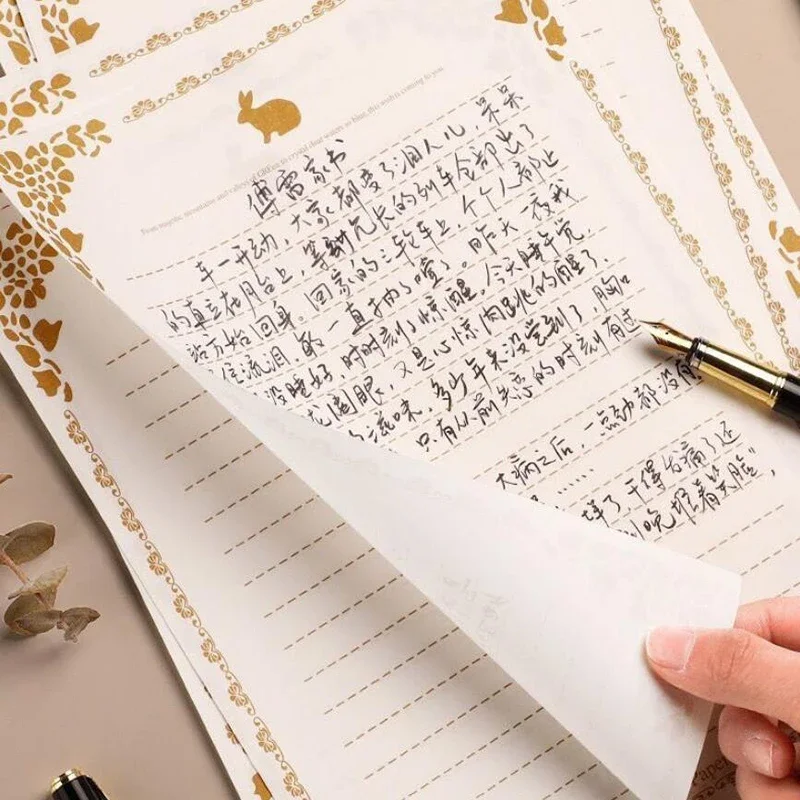 From majestic mountains and valleys of Green to crystal clear waters so blue, this wish is coming to you
傅雷家书
车一开动,大家都变了泪人儿,呆呆
的直立在月台上,等到冗长的列车全部出了
站方始回身。回家的三轮车上,个个人都止
住流泪,敏一直抽了噎了。昨天一夜我
没睡好,时时刻了惊醒,今天睡午觉,
胧阖眼,又是心惊肉跳的醒了,
滋味,多少年来没尝到了,胸口
只有从前失恋的时刻有过
大病之后,一点劲都没
……
了干得发痛了还
到晚堆着笑脸",
Paper